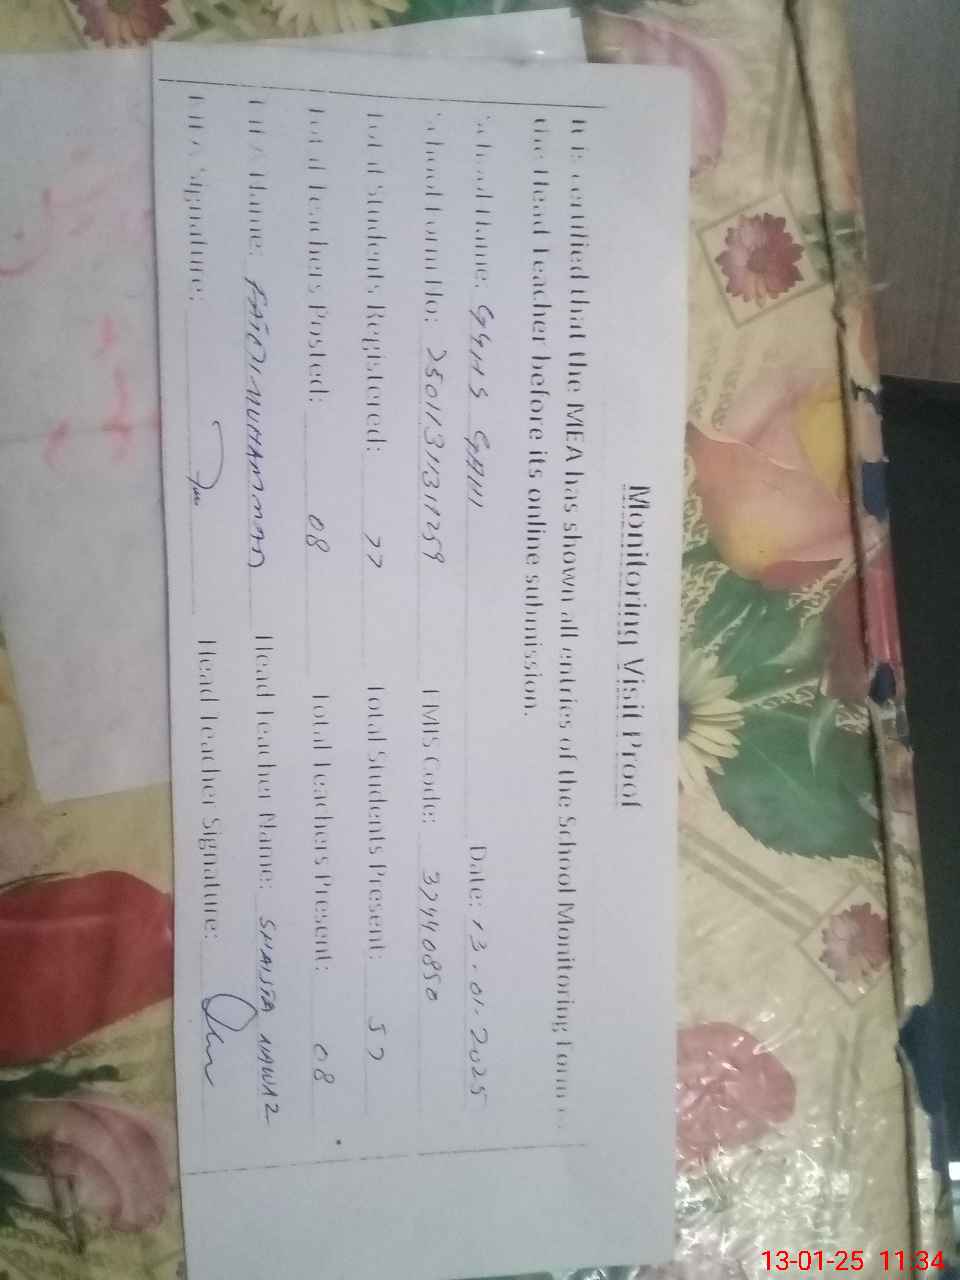 Monitoring Visit Proof
It is certified that the MEA has shown all entries of the School Monitoring Form to
the Head Teacher before its online submission.
School Name: GGHS Date: 13.01.2025
School Form No: EMIS Code: 37440850
Total Students Registered: 77 Total Students Present: 57
Total Teachers Posted: 08 Total Teachers Present: 08
MEA Name: MUHAMMAD Head Teacher Name: SHAISTA NAWAZ
MEA Signature: Head Teacher Signature:
13-01-25 11:34